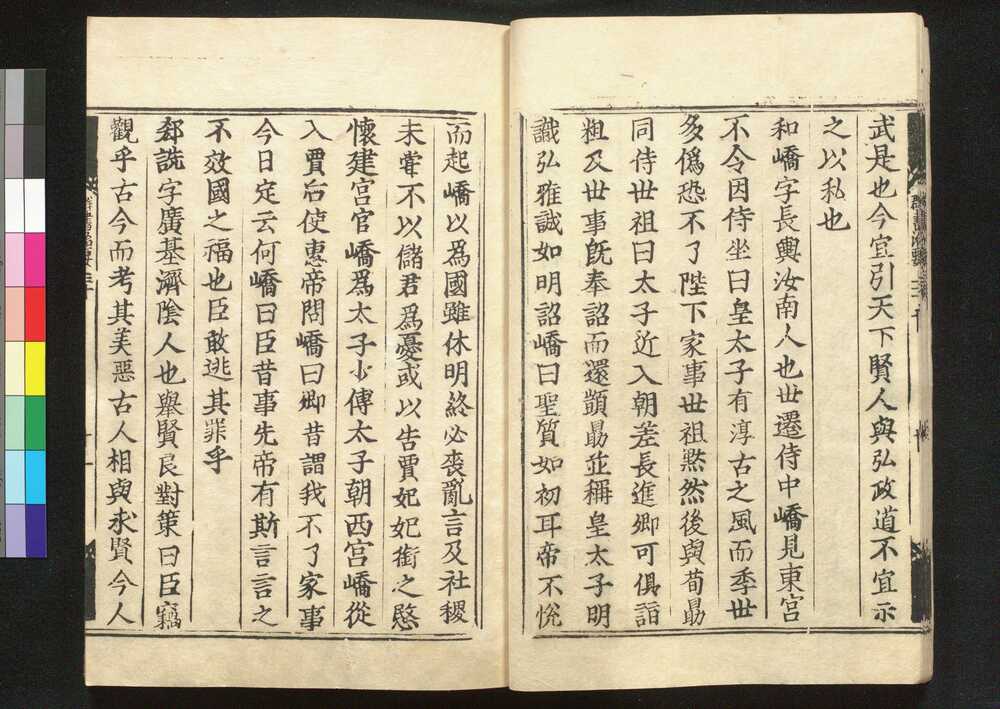 武是也今宜引天下賢人與弘政道不宜示
之以私也
和嶠字長輿汝南人也世遷侍中嶠見東宮
不令因侍坐曰皇太子有淳古之風而季世
多僞恐不了陛下家事世祖黙然後與荀勗
同侍世祖曰太子近入朝差長進卿可俱詣
粗及世事旣奉詔而還顗勗並稱皇太子明
識弘雅誠如明詔嶠曰聖質如初耳帝不悅
而起嶠以爲國雖休明終必喪亂言及社稷
未甞不以儲君爲憂或以告賈妃妃銜之愍
懷建宮官嶠爲太子少傅太子朝西宮嶠從
入賈后使惠帝問嶠曰卿昔謂我不了家事
今日定云何嶠曰臣昔事先帝有斯言言之
不效國之福也臣敢逃其罪乎
郄詵字廣基濟陰人也舉賢良對策曰臣竊
觀乎古今而考其美惡古人相與求賢今人